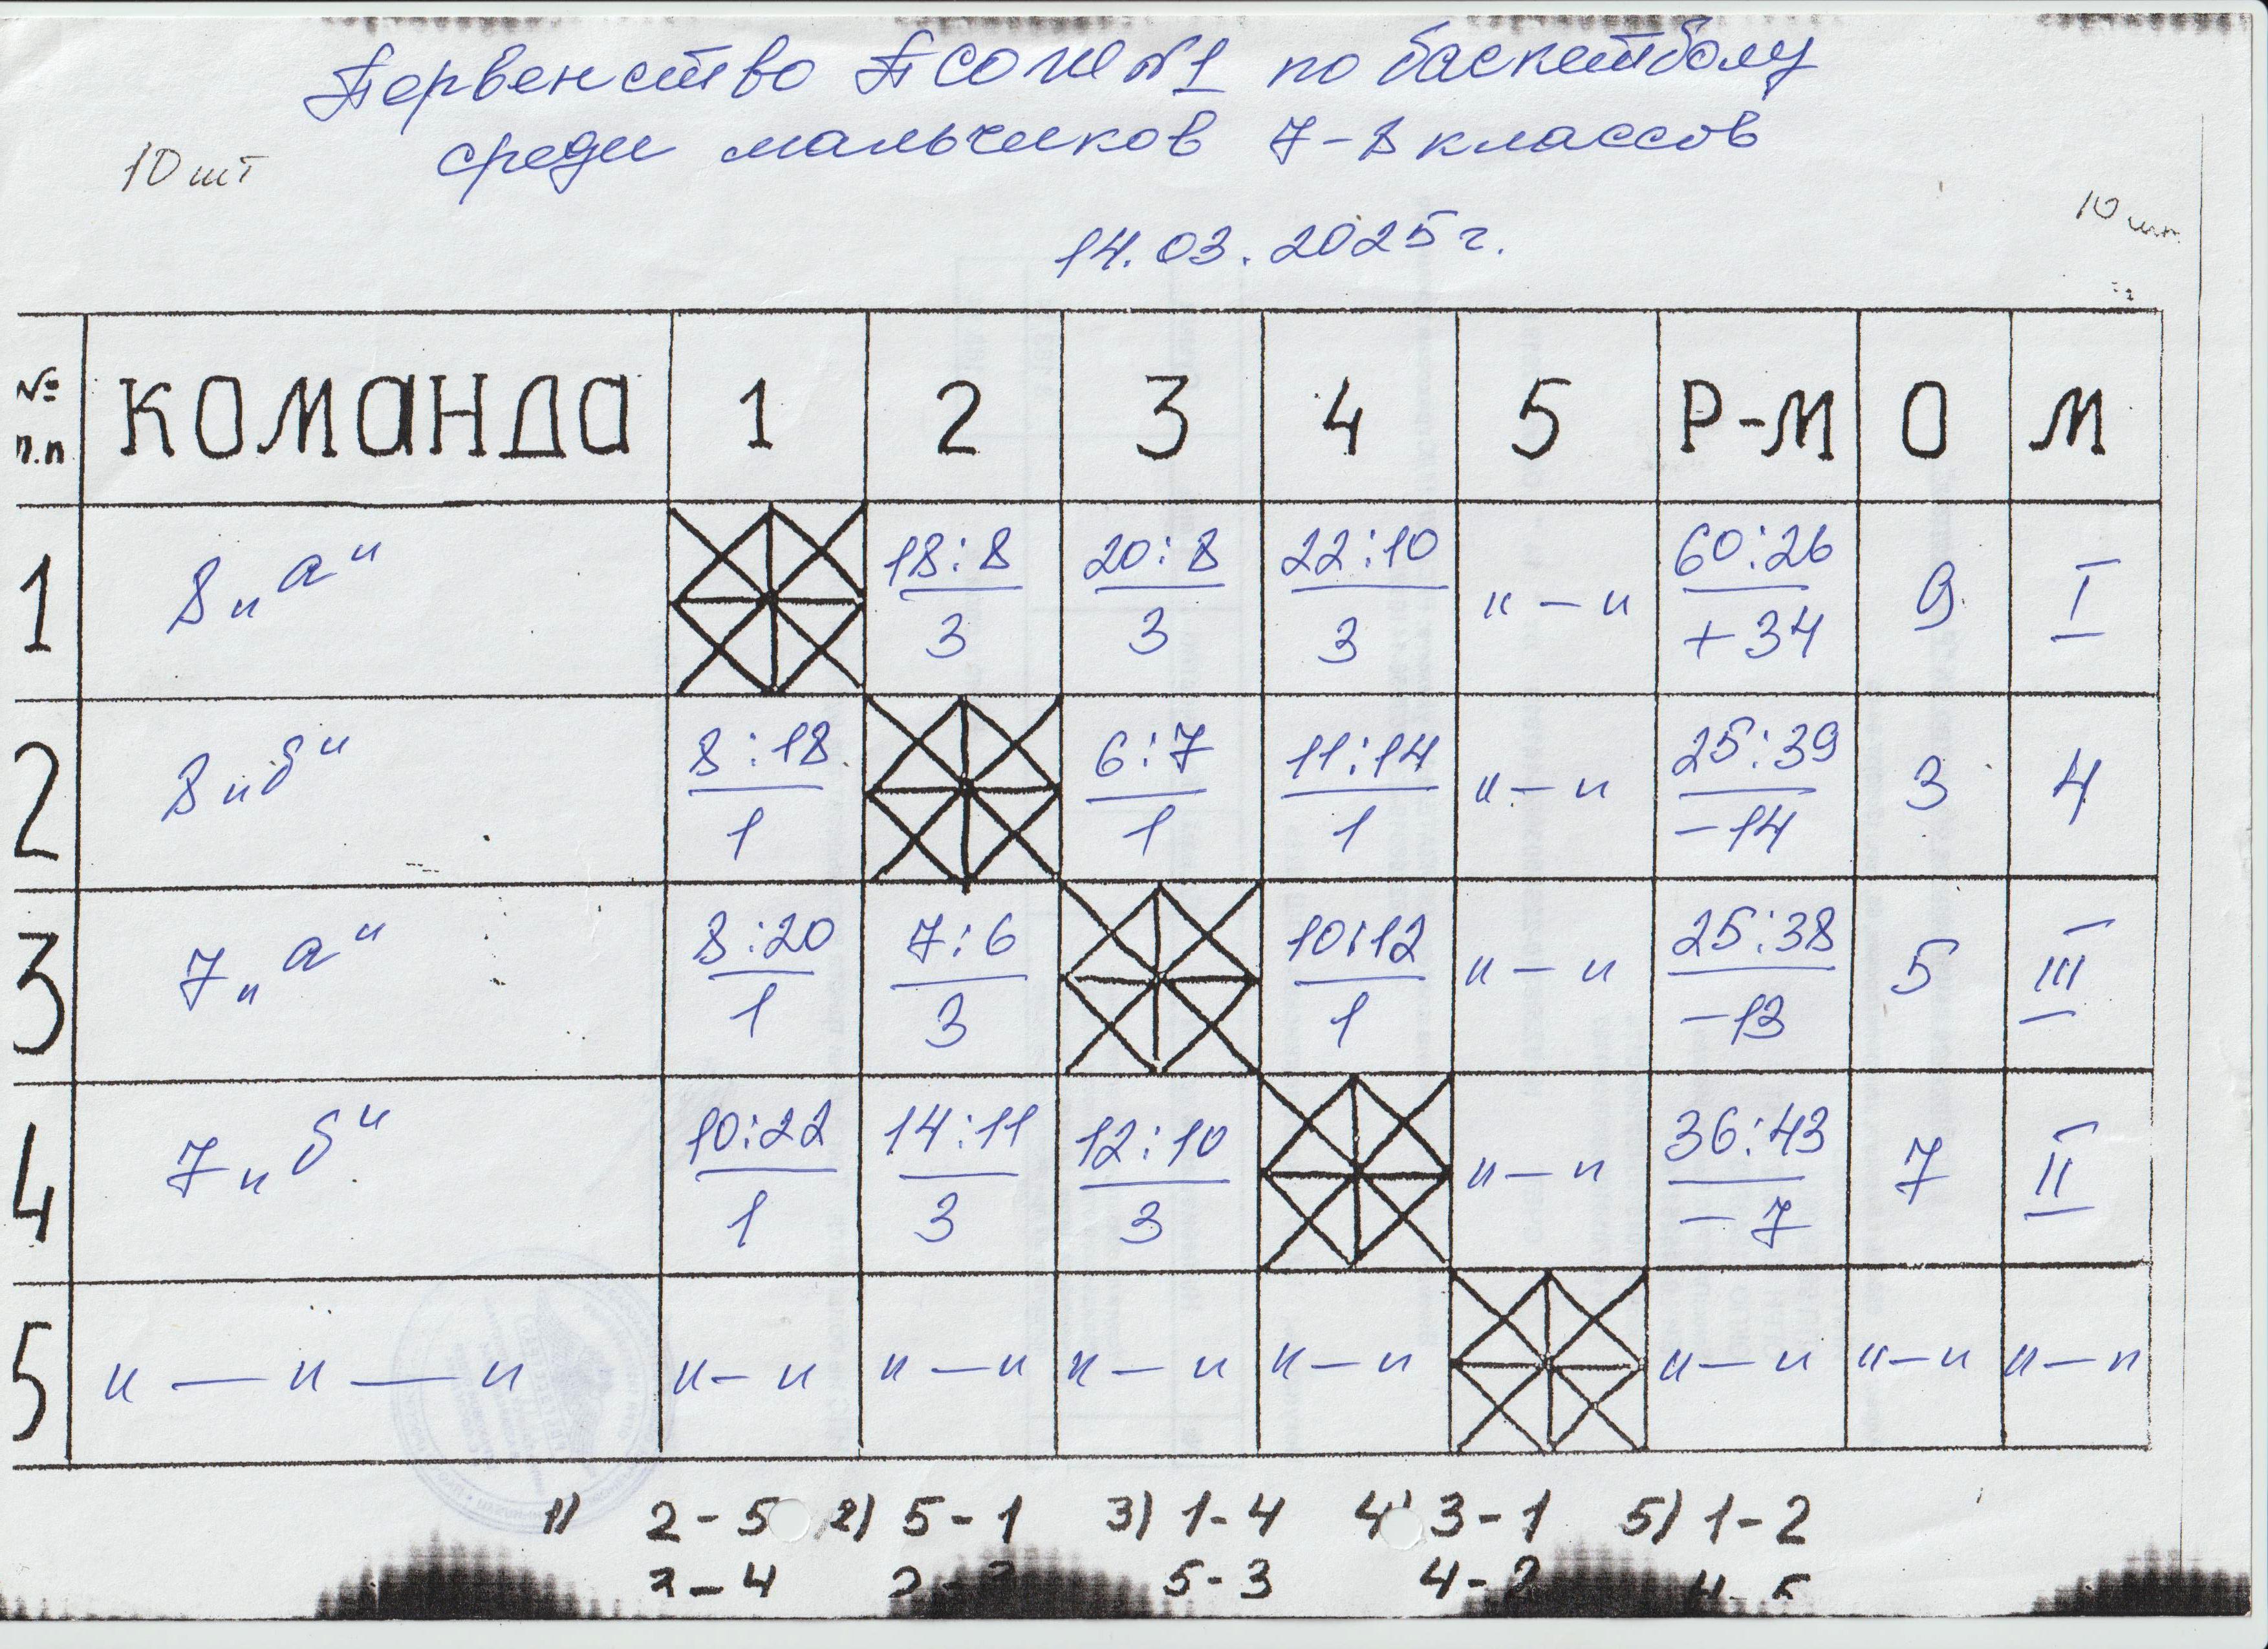 Первенство ПСОШ №1 по баскетболу
среди мальчиков 7-8 классов
10 шт
10 шт
14.03.2025 г.
№ п.п КОМАНДА 1 2 3 4 5 Р-М О М
1 8 „а“ 18:8 20:8 22:10 „ — „ 60:26 9 I
3 3 3 +34
2 8 „б“ 8:18 6:7 11:14 „ — „ 25:39 3 4
1 1 1 -14
3 7 „а“ 8:20 7:6 10:12 „ — „ 25:38 5 III
1 3 1 -13
4 7 „б“ 10:22 14:11 12:10 „ — „ 36:43 7 II
1 3 3 -7
5 „ — „ — „ „ — „ „ — „ „ — „ „ — „ „ — „ „ — „ „ — „
1) 2-5 2) 5-1 3) 1-4 4) 3-1 5) 1-2
3-4 5-3 4-2 4-5